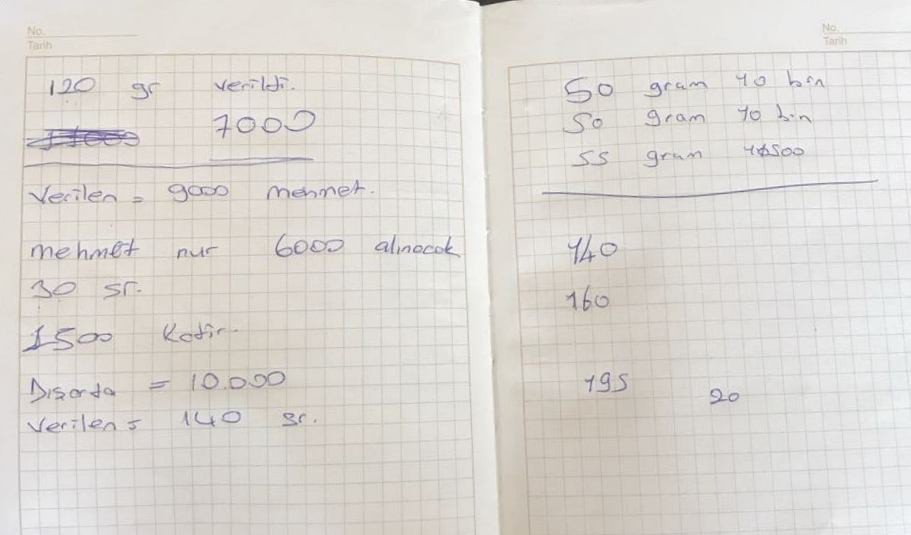 No.
Tarih
120 gr verildi.
7000
Verilen = 9000 mehmet.
mehmet nur 6000 alınacak
30 gr.
1500 Kadir
Dışarda = 10.000
Verilen = 140 gr.
No.
Tarih
50 gram 10 bin
50 gram 10 bin
55 gram
140
160
195
20